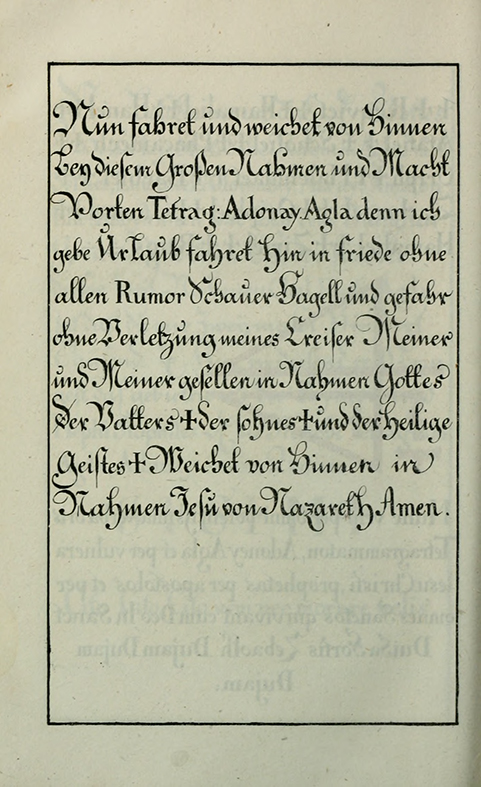 Nun fahret und weichet von Hinnen
bey diesem Großen Nahmen und Macht
Worten Tetrag: Adonay. Agla denn ich
gebe Urlaub fahret hin in friede ohne
allen Rumor Schauer Hagell und gefahr
ohne Verletzung meines Creiser Meiner
und Meiner gesellen in Nahmen Gottes
der Vatters + der sohnes + und der Heilige
Geistes + Weichet von Hinnen in
Nahmen Jesu von Nazareth Amen.